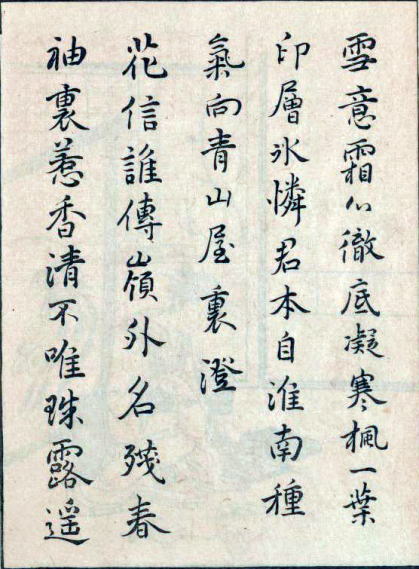 雪意霜心徹底凝寒楓一葉
印層氷憐君本自淮南種
氣向青山屋裏澄
花信誰傳嶺外名残春
袖裏惹香清不唯珠露遥